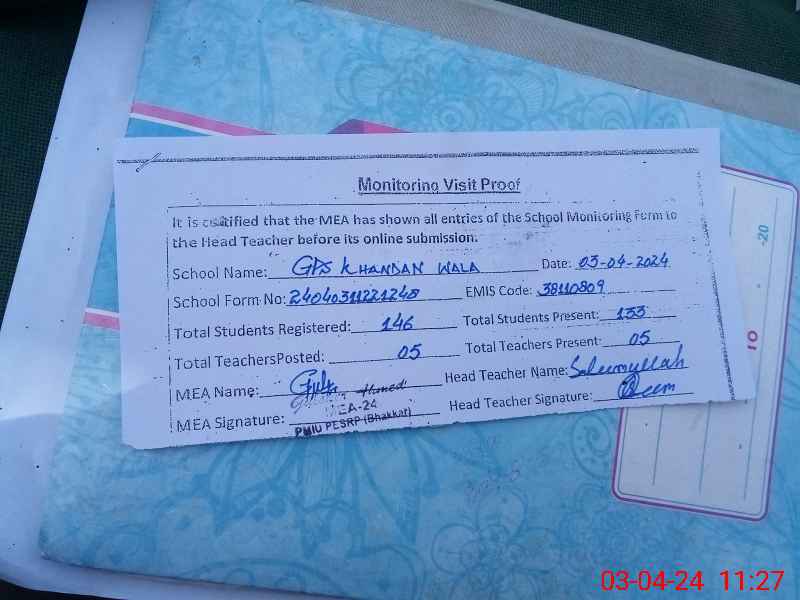 Monitoring Visit Proof
It is certified that the MEA has shown all entries of the School Monitoring Form to
the Head Teacher before its online submission.
School Name: GPS KHANDAN WALA Date: 03-04-2024
School Form No: 24040311221248 EMIS Code: 38110809
Total Students Registered: 146 Total Students Present: 133
Total TeachersPosted: 05 Total Teachers Present: 05
MEA Name: Head Teacher Name: Saleemullah
Ahmed
MEA-24
MEA Signature: Head Teacher Signature:
PMIU PESRP (Bhakkar)
-20
10
03-04-24 11:27